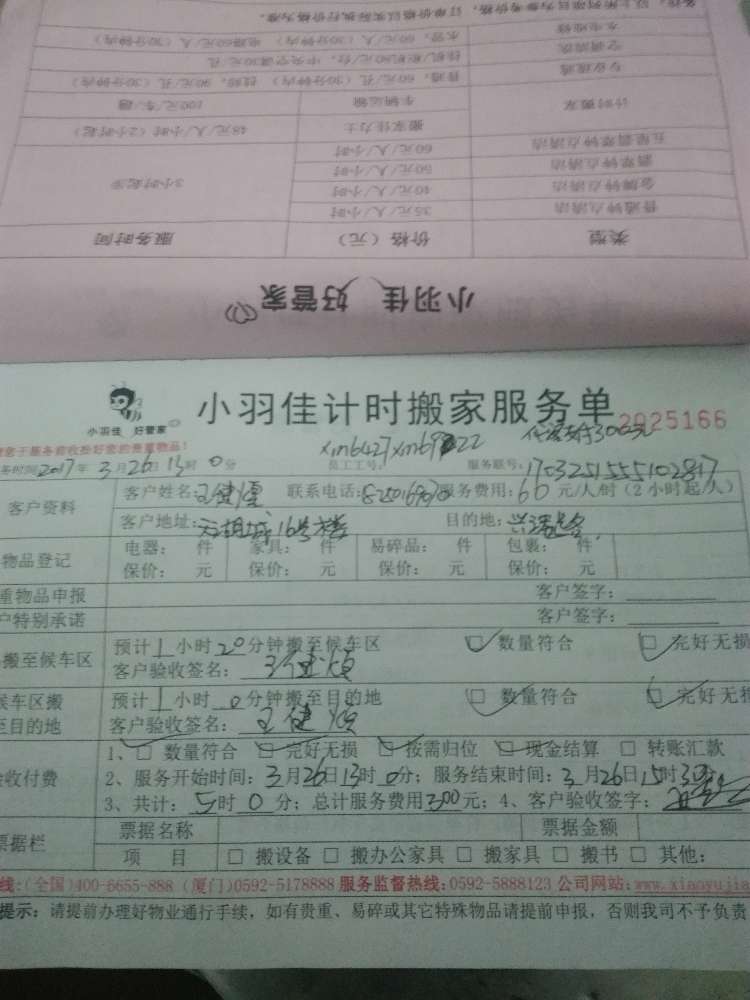 备注：以上所列项目为参考价格，订单价格以实际执行价格为准。
水电维修 水管，60元/人（30分钟内） 电路60元/人（30分钟内）
空调清洗
专业疏通 普通，60元/孔（30分钟内）
计时搬家 车辆运输 100元/车/趟
搬家佳力士 48元/人/小时（2小时起）
五星翡翠钟点清洁 60元/人/小时
翡翠钟点清洁 50元/人/小时
金牌钟点清洁 40元/人/小时 3小时起步
普通钟点清洁 35元/人/小时
类型 价格（元） 服务时间
小羽佳 好管家
小羽佳 好管家
小羽佳计时搬家服务单
2025166
xm6427 代客支付300元
服务验收捡好您的贵重物品！
务时间2017年3月26日13时0分 员工工号： 服务联号：
客户资料 客户姓名： 联系电话： 服务费用：60元/人/时（2小时起/人）
客户地址：天湖城16号楼 目的地：
物品登记 电器： 件 家具： 件 易碎品： 件 包裹： 件
保价： 元 保价： 元 保价： 元 保价： 元
重物品申报 客户签字：
户特别承诺 客户签字：
搬至候车区 预计1小时20分钟搬至候车区 □数量符合 □完好无损
客户验收签名：
候车区搬至目的地 预计1小时0分钟搬至目的地 □数量符合 □完好无损
客户验收签名：
验收付费 1、□数量符合 □完好无损 □按需归位 □现金结算 □转账汇款
2、服务开始时间：3月26日13时0分；服务结束时间：3月26日15时30
3、共计：5时0分；总计服务费用300元；4、客户验收签字：
票据栏 票据名称 票据金额
项 目 □搬设备 □搬办公家具 □搬家具 □搬书 □其他：
线：(全国)400-6655-888 (厦门)0592-5178888 服务监督热线：0592-5888123 公司网站：www.xiaoyujia
提示：请提前办理好物业通行手续，如有贵重、易碎或其它特殊物品请提前申报，否则我司不予负责